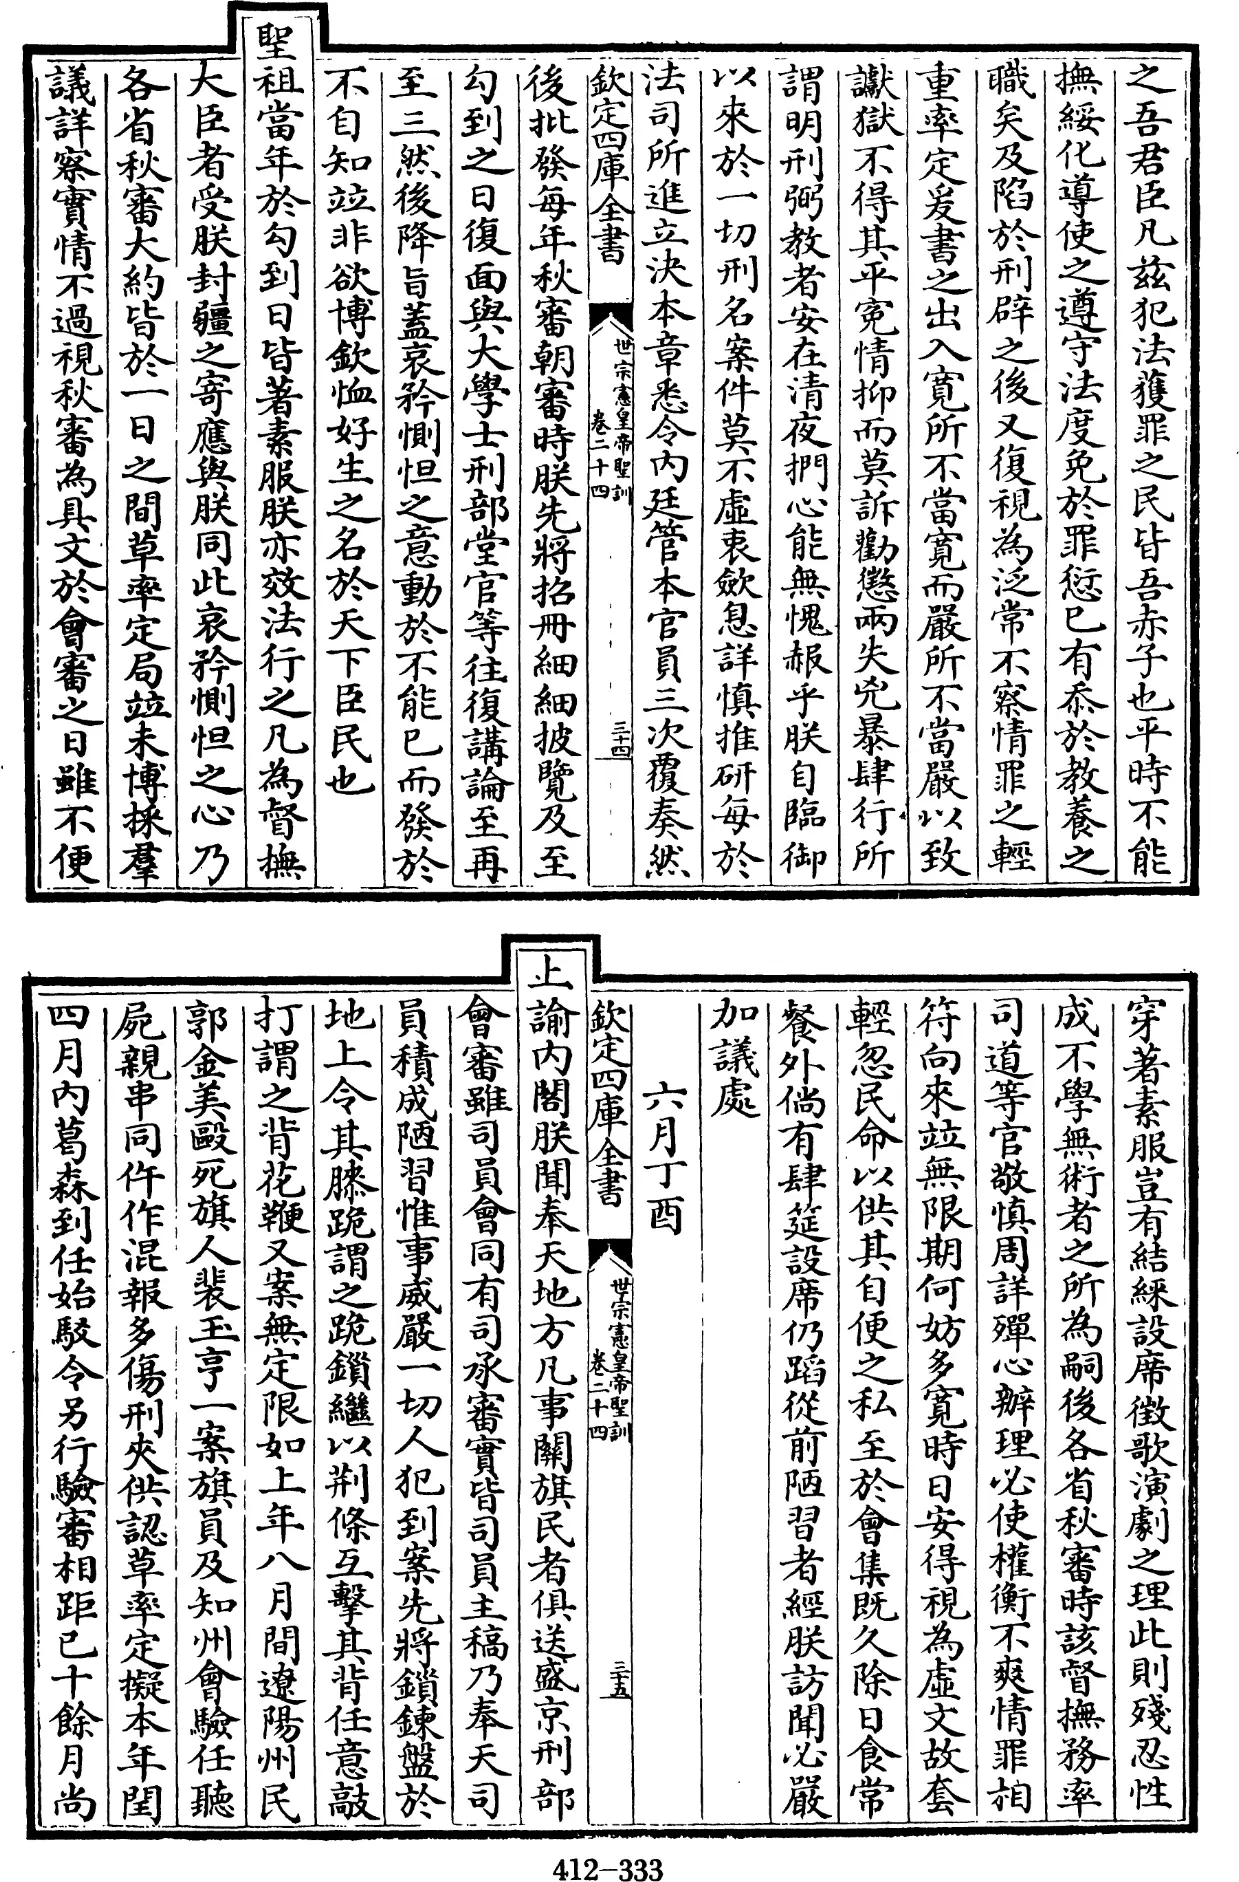 之吾君臣凡兹犯法獲罪之民皆吾赤子也平時不能
撫綏化導使之遵守法度免於罪愆已有忝於教養之
職矣及陷於刑辟之後又復視為泛常不察情罪之輕
重率定爰書之出入寛所不當寛而嚴所不當嚴以致
讞獄不得其平寃情抑而莫訴勸懲兩失兇暴肆行所
謂明刑弼教者安在清夜捫心能無愧赧乎朕自臨御
以來於一切刑名案件莫不虛衷歛息詳慎推研每於
法司所進立決本章悉令内廷管本官員三次覆奏然
欽定四庫全書
世宗憲皇帝聖訓
卷二十四
三十四
後批發每年秋審朝審時朕先將招冊細細披覽及至
勾到之日復面與大學士刑部堂官等往復講論至再
至三然後降旨蓋哀矜惻怛之意動於不能已而發於
不自知竝非欲博欽恤好生之名於天下臣民也
聖祖當年於勾到日皆著素服朕亦效法行之凡為督撫
大臣者受朕封疆之寄應與朕同此哀矜惻怛之心乃
各省秋審大約皆於一日之間草率定局竝未博採羣
議詳察實情不過視秋審為具文於會審之日雖不便
穿著素服豈有結綵設席徴歌演劇之理此則殘忍性
成不學無術者之所為嗣後各省秋審時該督撫務率
司道等官敬慎周詳殫心辦理必使權衡不爽情罪相
符向來竝無限期何妨多寛時日安得視為虛文故套
輕忽民命以供其自便之私至於會集既久除日食常
餐外倘有肆筵設席仍蹈從前陋習者經朕訪聞必嚴
加議處
六月丁酉
欽定四庫全書
世宗憲皇帝聖訓
卷二十四
三十五
上諭内閣朕聞奉天地方凡事關旗民者俱送盛京刑部
會審雖司員會同有司承審實皆司員主稿乃奉天司
員積成陋習惟事威嚴一切人犯到案先將鎖鍊盤於
地上令其膝跪謂之跪鎖繼以荆條互擊其背任意敲
打謂之背花鞭又案無定限如上年八月間遼陽州民
郭金美毆死旗人裴玉亨一案旗員及知州會驗任聽
屍親串同仵作混報多傷刑夾供認草率定擬本年閏
四月内葛森到任始駁令另行驗審相距已十餘月尚
412-333